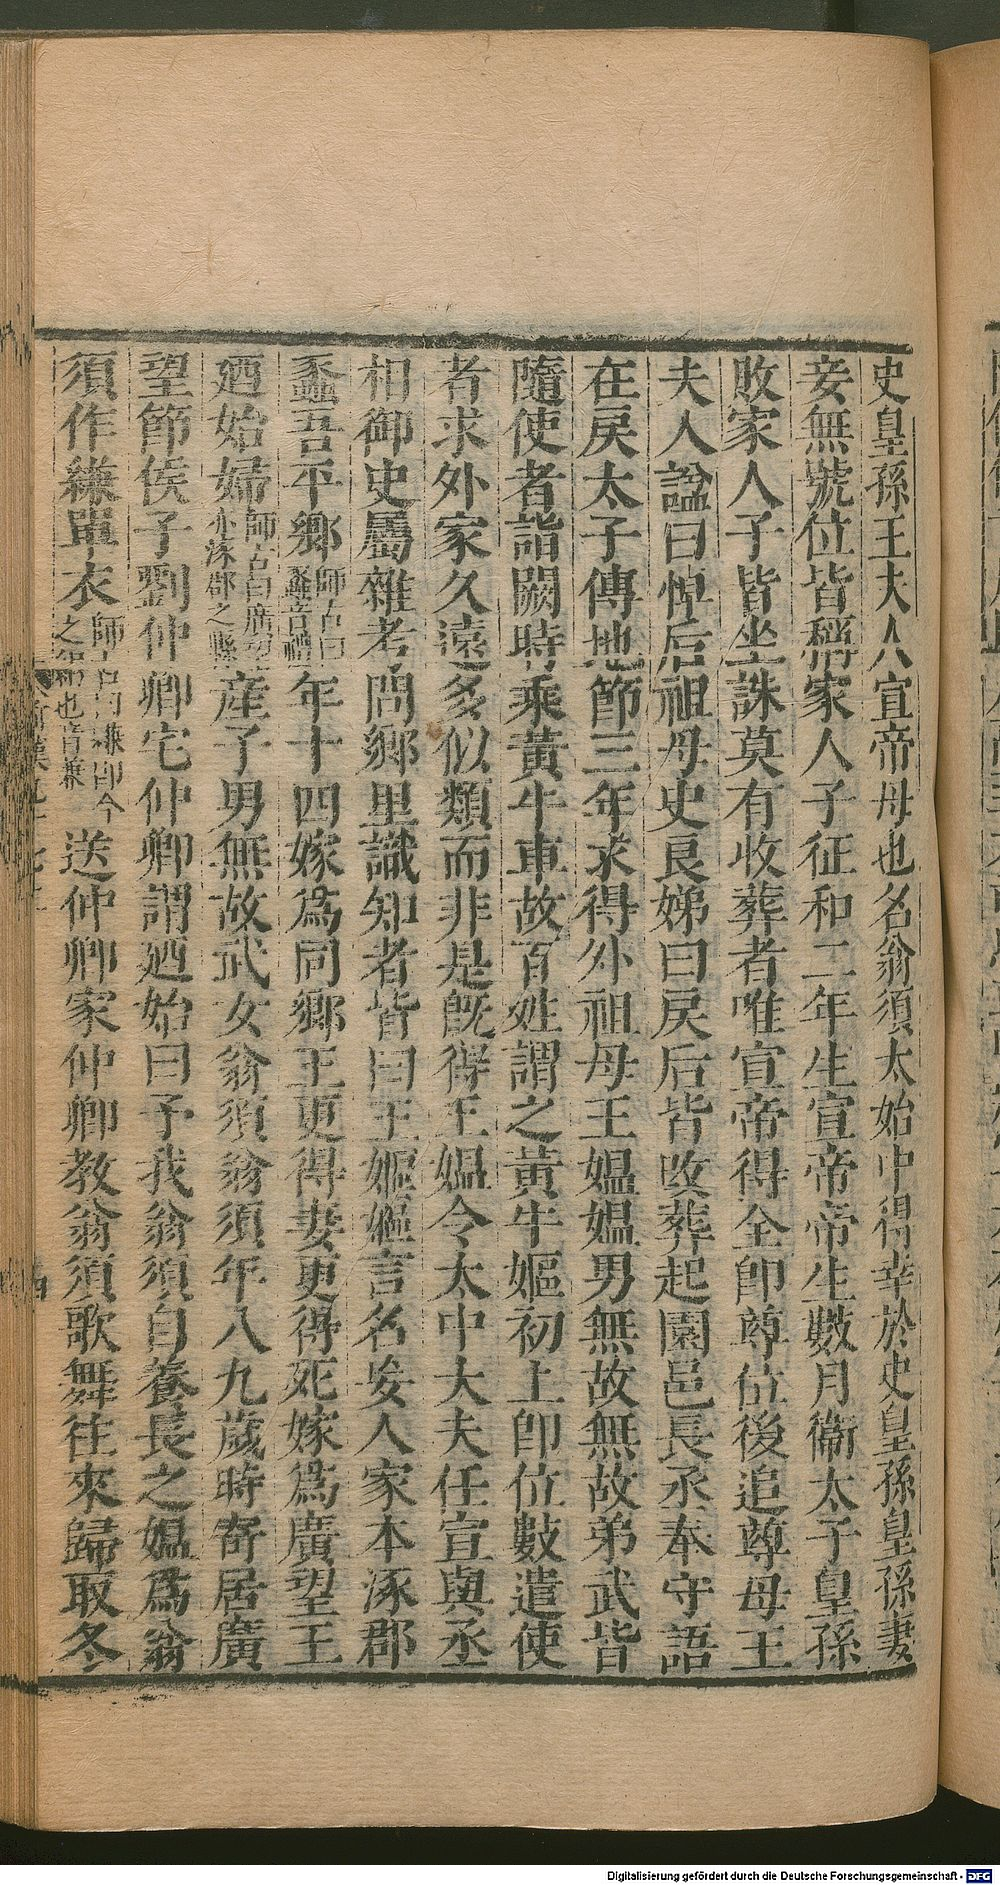 史皇孫王夫人宣帝母也名翁須太始中得幸於史皇孫皇孫妻
妾無號位皆稱家人子征和二年生宣帝帝生數月衞太子皇孫
敗家人子皆坐誅莫有收葬者唯宣帝得全卽尊位後追尊母王
夫人諡曰悼后祖母史良娣曰戾后皆改葬起園邑長丞奉守語
在戾太子傳地節三年求得外祖母王媼媼男無故無故弟武皆
隨使者詣闕時乘黃牛車故百姓謂之黃牛嫗初上卽位數遣使
者求外家久遠多似類而非是旣得王媼令太中大夫任宣與丞
相御史屬雜考問鄉里識知者皆曰王嫗嫗言名妾人家本涿郡
蠡吾平鄉師古曰蠡音禮年十四嫁爲同鄉王更得妻更得死嫁爲廣望王
廼始婦師古曰廣望亦涿郡之縣產子男無故武女翁須翁須年八九歲時寄居廣
望節侯子劉仲卿宅仲卿謂廼始曰予我翁須自養長之媼爲翁
須作縑單衣師古曰縑卽今之絹也音兼送仲卿家仲卿教翁須歌舞往來歸取冬
Digitalisierung gefördert durch die Deutsche Forschungsgemeinschaft - DFG